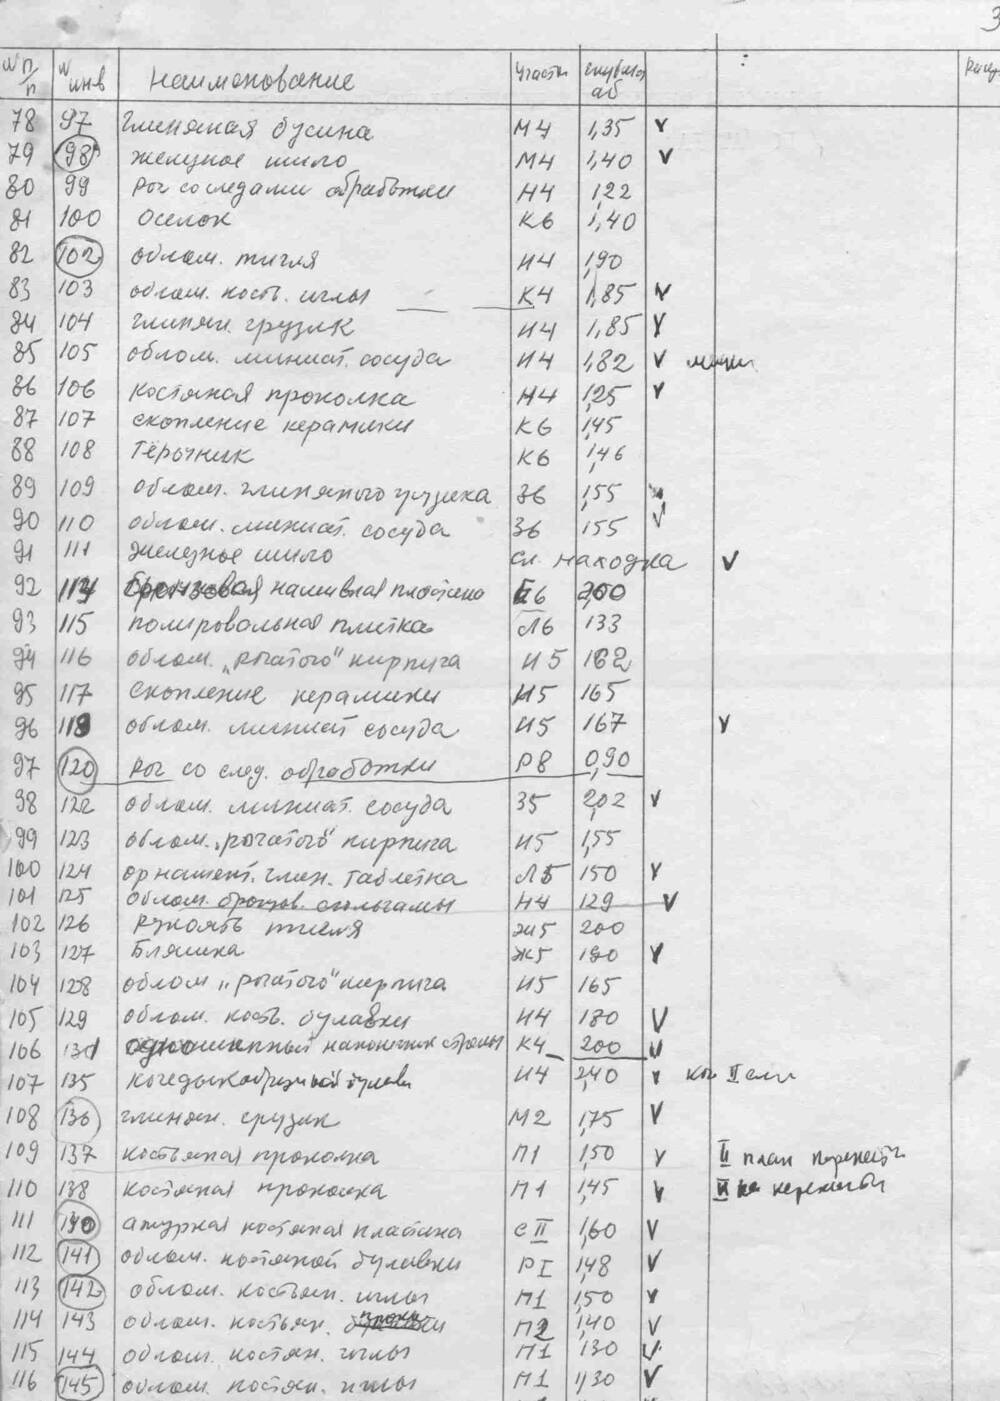 3
N п/п N инв Наименование Участок глубина аб
78 97 Глиняная бусина М4 1,35 v
79 98 железное шило М4 1,40 v
80 99 Рог со следами обработки Н4 1,22
81 100 Оселок К6 1,40
82 102 облом. тигля И4 1,90
83 103 облом. кост. иглы К4 1,85 v
84 104 глинян. грузик И4 1,85 v
85 105 облом. миниат. сосуда И4 1,82 v
86 106 костяная проколка Н4 1,25 v
87 107 скопление керамики К6 1,45
88 108 Тёрочник К6 1,46
89 109 облом. глиняного грузика З6 1,55 v
90 110 облом. миниат. сосуда З6 155 v
91 111 железное шило сл. находка v
92 114 бронзовая нашивная пластина Б6 200
93 115 полировальная плитка Л6 133
94 116 облом. „рогатого" кирпича И5 162
95 117 скопление керамики И5 165
96 118 облом. миниат сосуда И5 167 v
97 120 Рог со след. обработки Р8 0,90
98 122 облом. миниат. сосуда З5 2,02 v
99 123 облом. „рогатого" кирпича И5 1,55
100 124 орнамент. глин. таблетка Л5 150 v
101 125 облом. бронзов. сюльгамы Н4 129 v
102 126 Рукоять тигля Ж5 200
103 127 Бляшка Ж5 190 v
104 128 облом „рогатого" кирпича И5 165
105 129 облом. кост. булавки И4 180 v
106 131 одношипный наконечник стрелы К4 200 v
107 135 кочедыкообразный булавк И4 2,40 v
108 136 глинян. грузик М2 1,75 v
109 137 костяная проколка П1 1,50 v II план
110 138 костяная проколка П1 1,45 v
111 140 ажурная костяная пластина С II 1,60 v
112 141 облом. костяной булавки Р I 1,48 v
113 142 облом. костян. иглы П1 1,50 v
114 143 облом. костян. П2 1,40 v
115 144 облом. костян. иглы П1 130 v
116 145 облом. костян. иглы П1 1,30 v